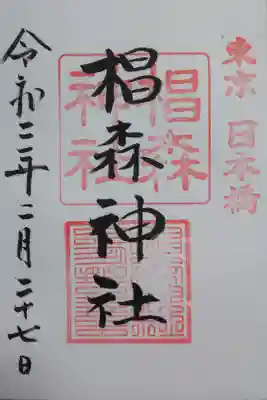 東京 日本橋
椙森神社
椙森
神社
令和三年二月二十七日